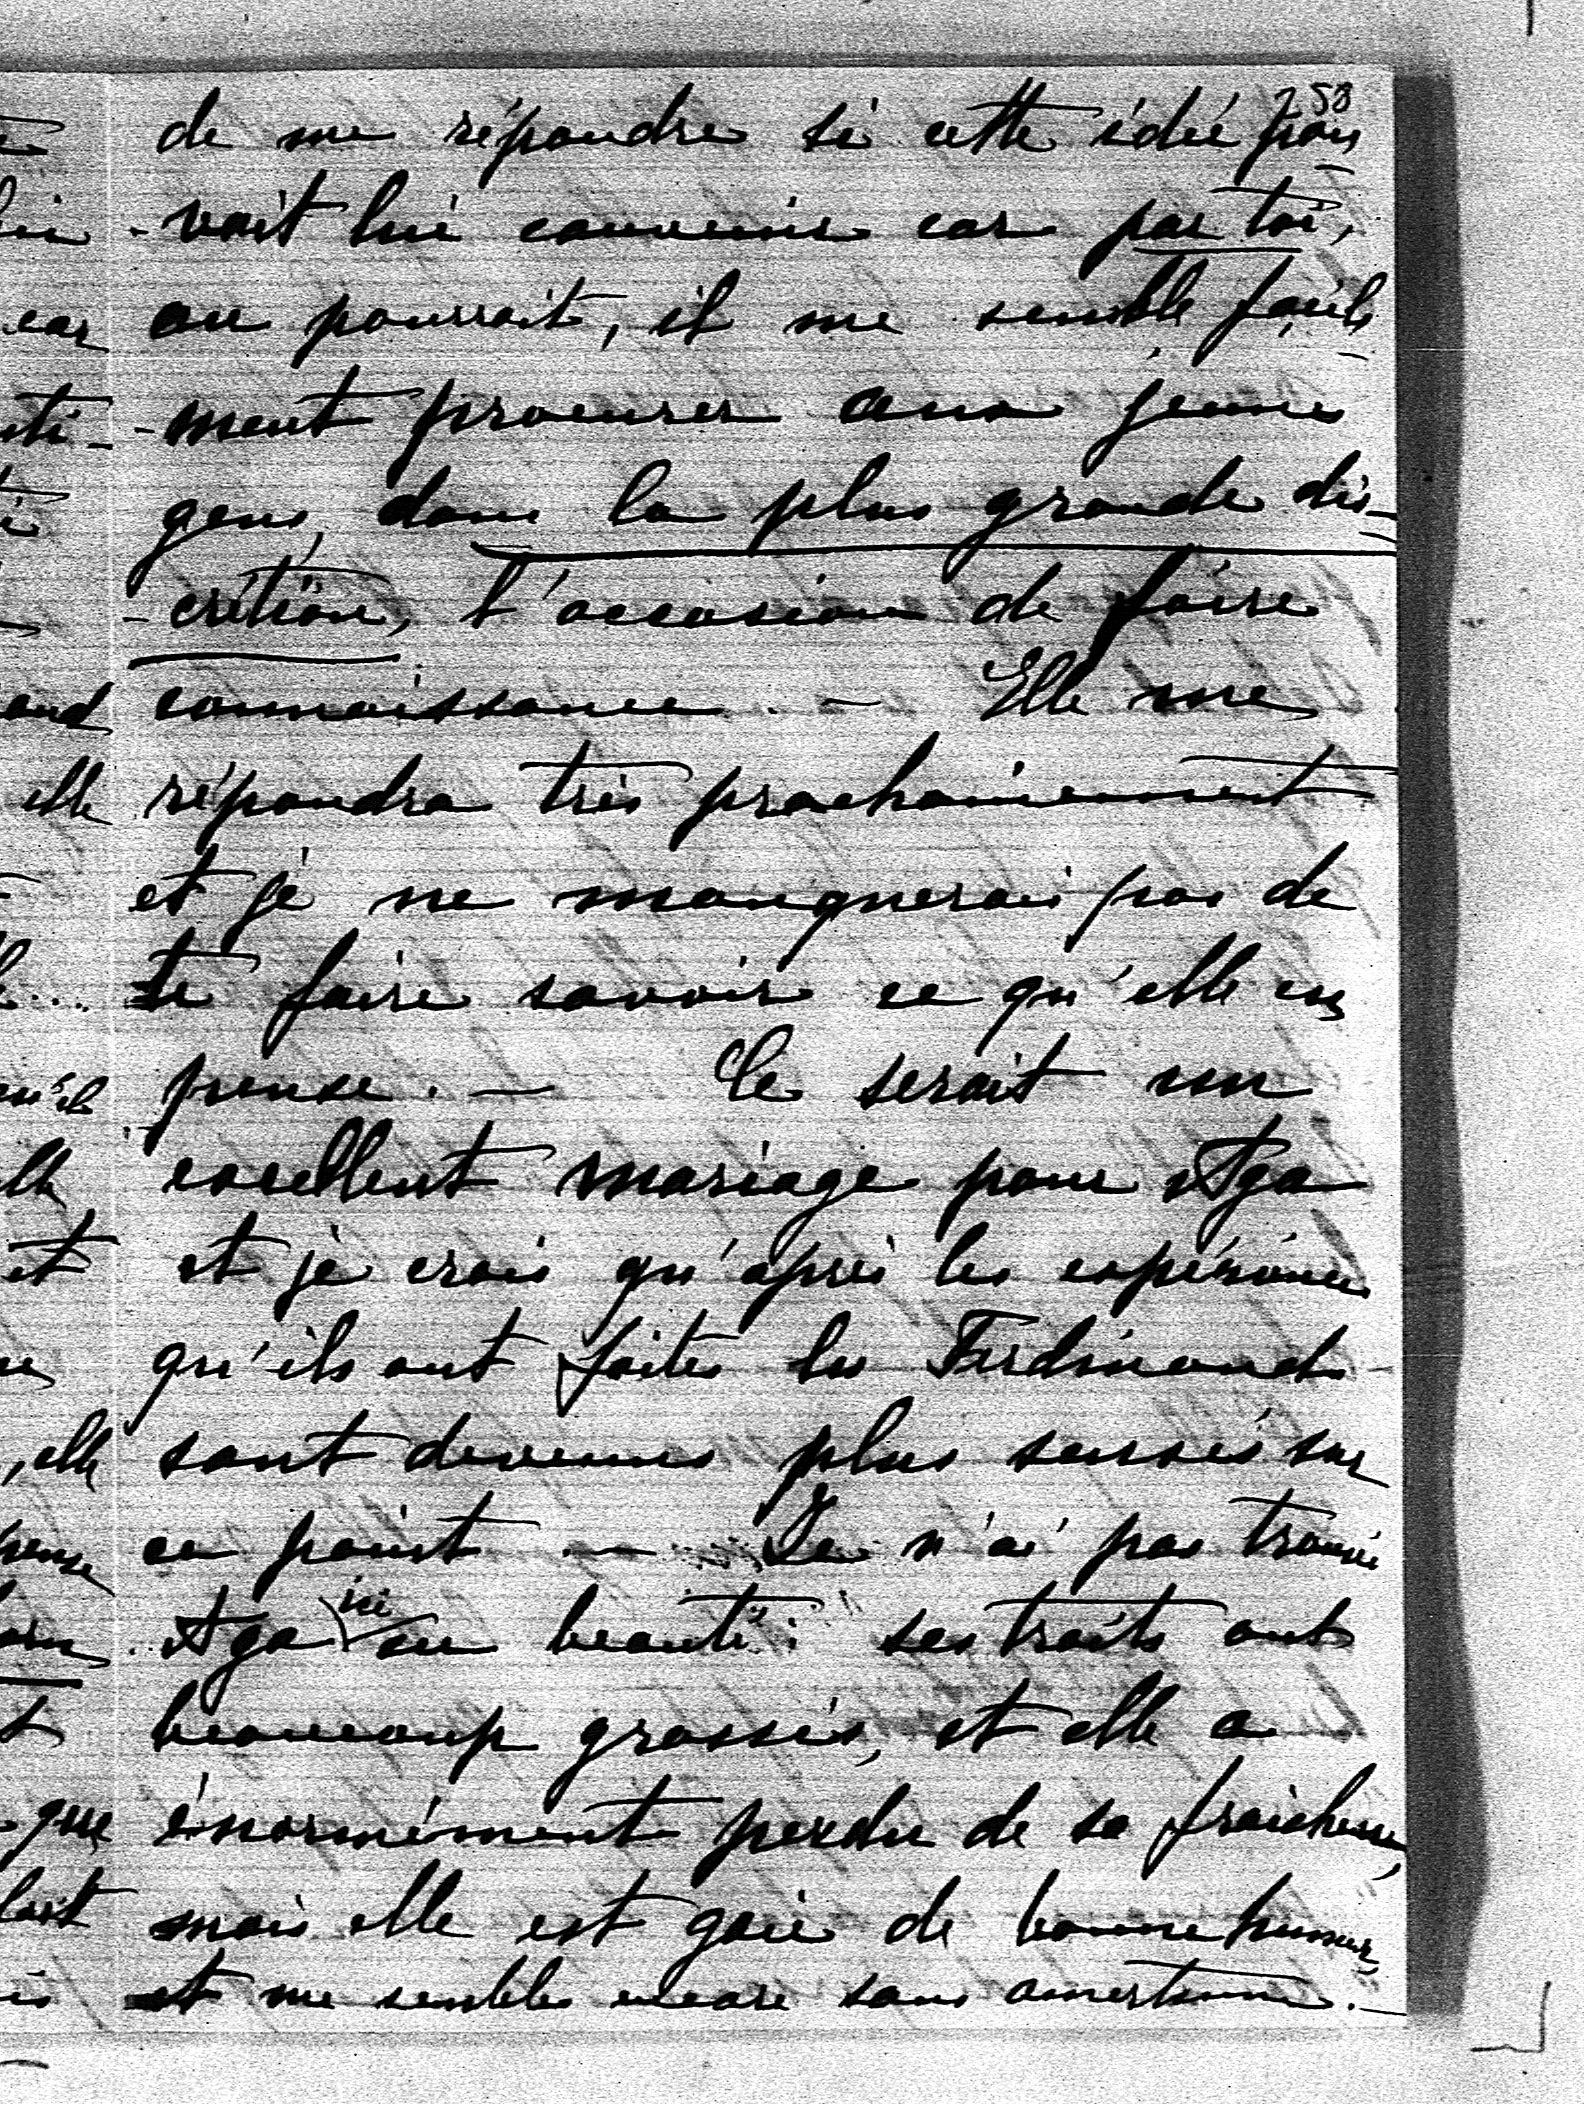 253
de me répondre si cette idée pou
-vait lui convenir car par toi,
on pourrait, il me semble facile
-ment procurer aux jeunes
gens, dans la plus grande dis-
-crétion, l'occasion de faire
connaissance. — Elle me
répondra très prochainement
et je ne manquerai pas de
te faire savoir ce qu'elle en
pense. — Ce serait un
excellent mariage pour Aga
et je crois qu'après les expériences
qu'ils ont faites les Ferdinand
sont devenus plus sensés sur
ce point — Je n'ai pas trouvé
Aga ici en beauté: ses traits ont
beaucoup grossis, et elle a
énormément perdu de sa fraicheur,
mais elle est gaie de bonne humeur
et me semble encore sans amertume. —
car
elle
qu'il
et
, elle
pense
que